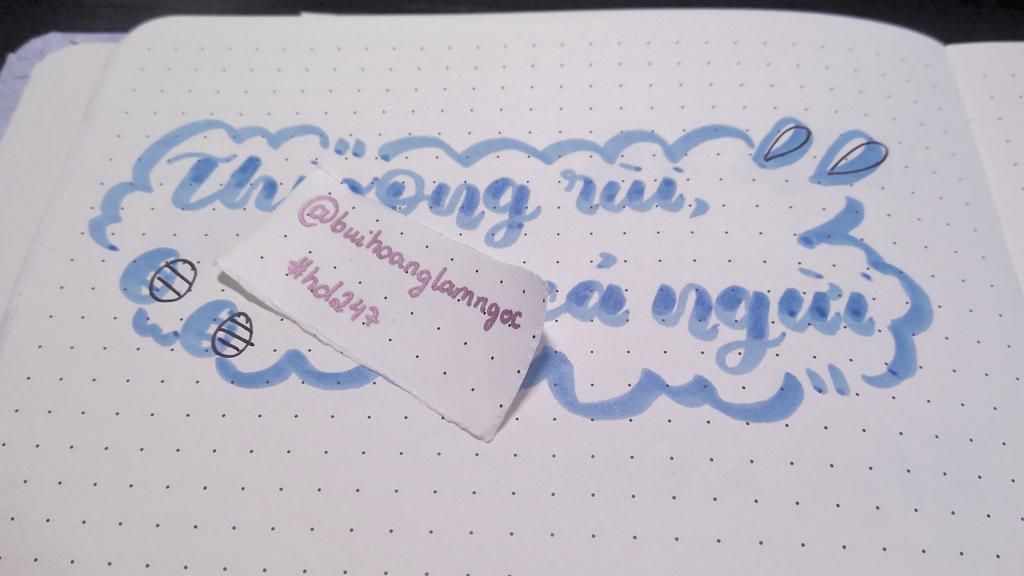 Thương rùi,
cả ngừi
@buihoanglamngoc
#hd247